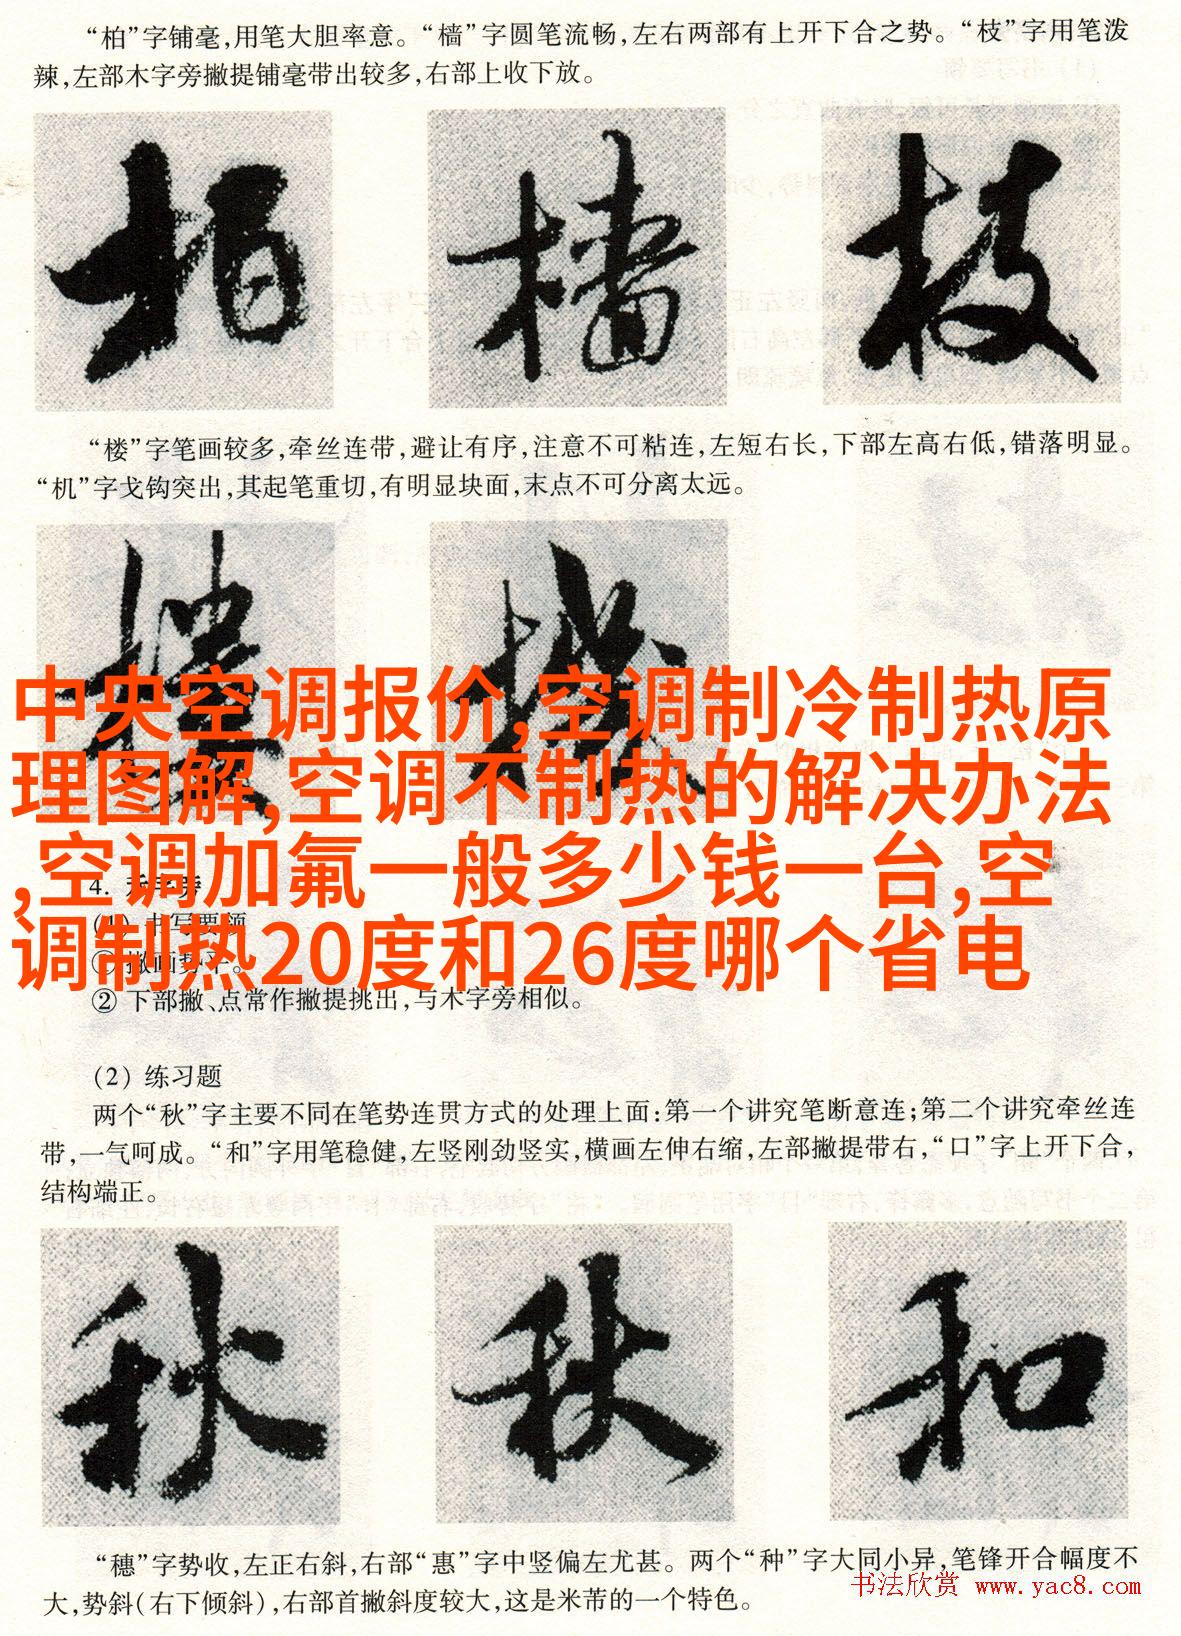 “柏”字铺毫,用笔大胆率意。“樯”字圆笔流畅,左右两部有上开下合之势。“枝”字用笔泼
辣,左部木字旁撇提铺毫带出较多,右部上收下放。
柏 樯 枝
“楼”字笔画较多,牵丝连带,避让有序,注意不可粘连,左短右长,下部左高右低,错落明显。
“机”字戈钩突出,其起笔重切,有明显块面,末点不可分离太远。
楼 機
中央空调报价,空调制冷制热原
理图解,空调不制热的解决办法
,空调加氟一般多少钱一台,空
调制热20度和26度哪个省电
4. 禾字旁
(1) 书写要领
① 撇画势平。
② 下部撇、点常作撇提挑出,与木字旁相似。
(2) 练习题
两个“秋”字主要不同在笔势连贯方式的处理上面:第一个讲究笔断意连;第二个讲究牵丝连
带,一气呵成。“和”字用笔稳健,左竖刚劲竖实,横画左伸右缩,左部撇提带右,“口”字上开下合,
结构端正。
秋 秋 和
“穗”字势收,左正右斜,右部“惠”字中竖偏左尤甚。两个“种”字大同小异,笔锋开合幅度不
大,势斜(右下倾斜),右部首撇斜度较大,这是米芾的一个特色。
书法欣赏 www.yac8.com